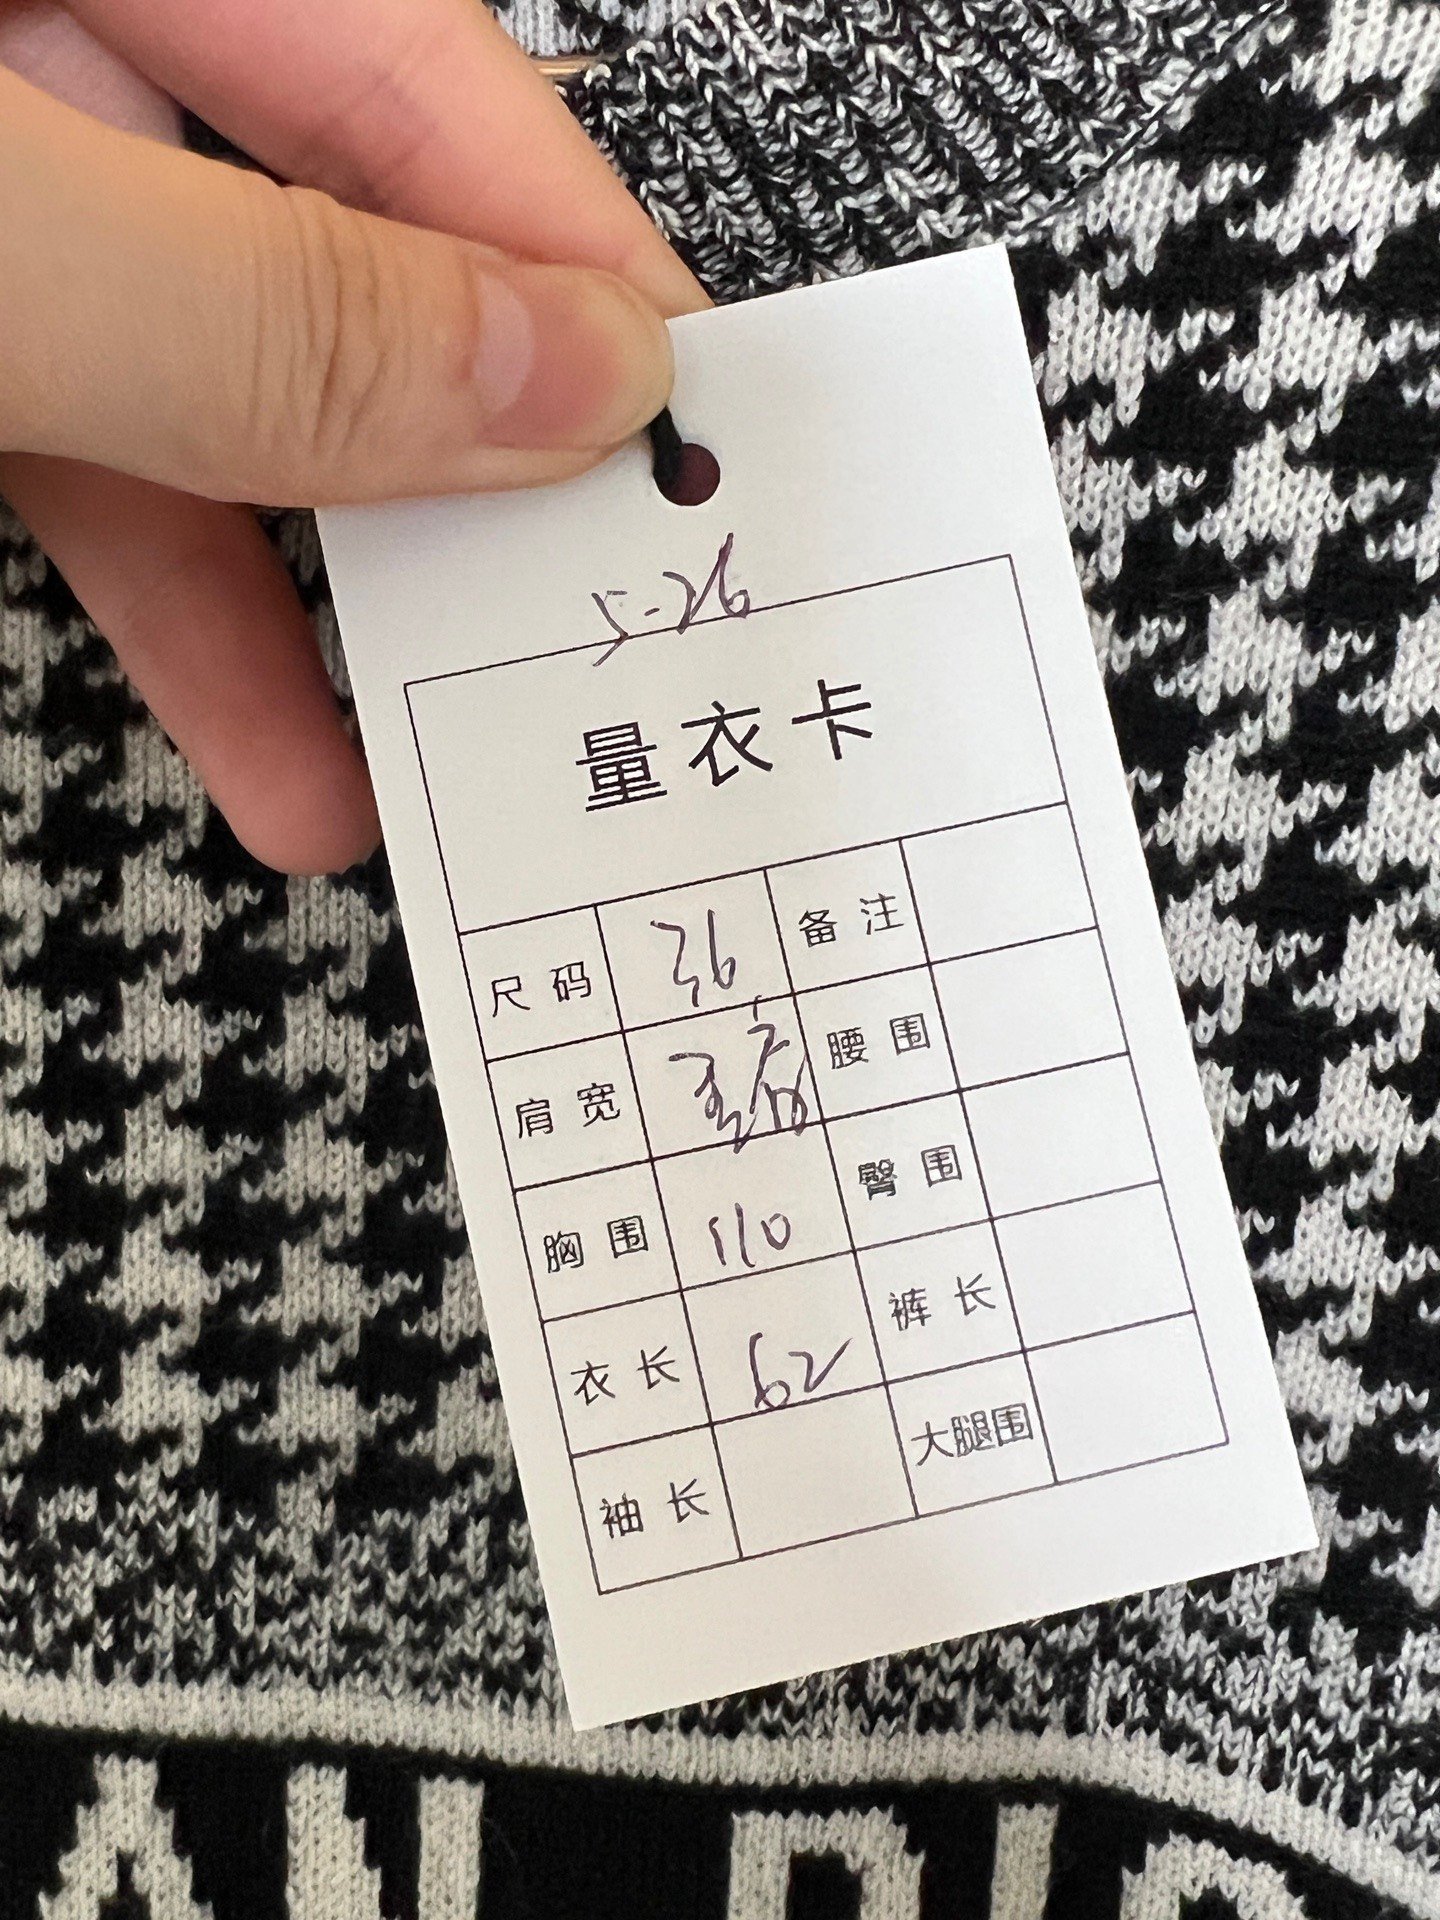 5-26
量衣卡
尺码 36 备注
肩宽 腰围
胸围 110 臀围
衣长 62 裤长
袖长 大腿围